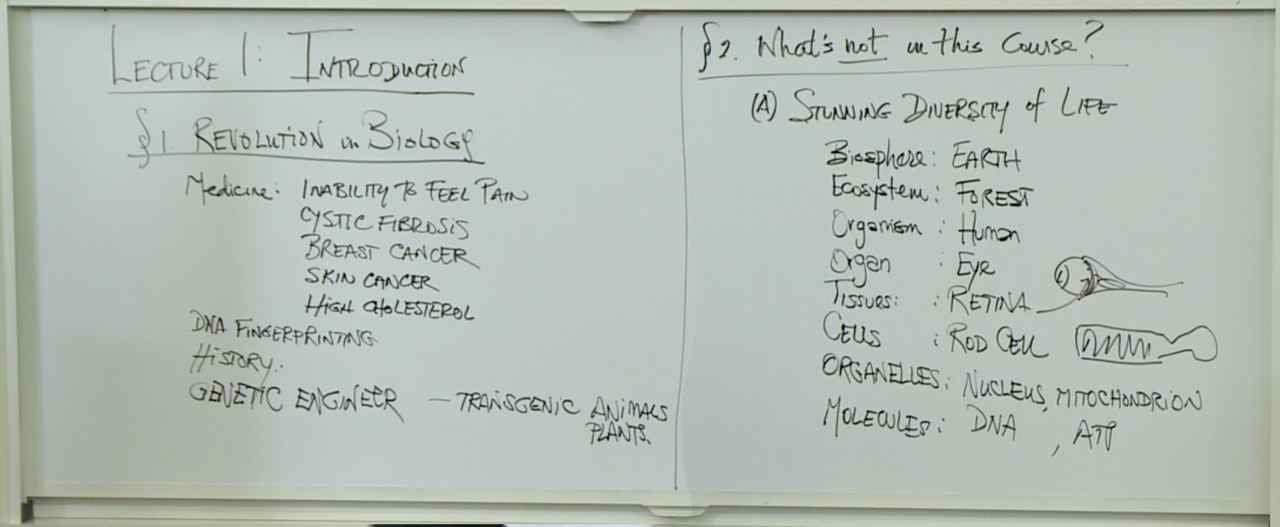 LECTURE 1: INTRODUCTION
§1. REVOLUTION in BIOLOGY
Medicine: INABILITY TO FEEL PAIN
CYSTIC FIBROSIS
BREAST CANCER
SKIN CANCER
HIGH CHOLESTEROL
DNA FINGERPRINTING
HISTORY..
GENETIC ENGINEER — TRANSGENIC ANIMALS
PLANTS.
§2. What's not in this Course?
(A) STUNNING DIVERSITY of LIFE
Biosphere: EARTH
Ecosystem: FOREST
Organism: Human
Organ: Eye
TISSUES: : RETINA
CELLS: ROD CELL
ORGANELLES: NUCLEUS, MITOCHONDRION
MOLECULES: DNA, ATP